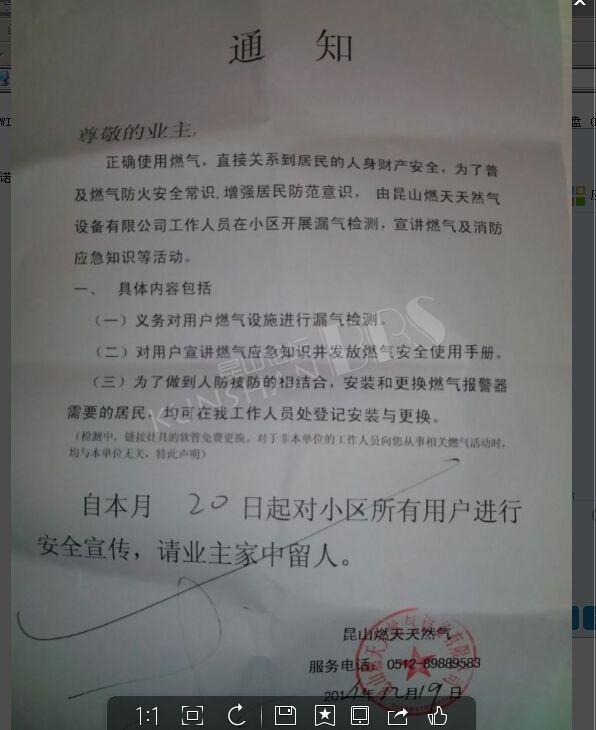 通 知
尊敬的业主:
正确使用燃气，直接关系到居民的人身财产安全，为了普
及燃气防火安全常识,增强居民防范意识， 由昆山燃天天然气
设备有限公司工作人员在小区开展漏气检测，宣讲燃气及消防
应急知识等活动。
一、 具体内容包括
（一）义务对用户燃气设施进行漏气检测。
（二）对用户宣讲燃气应急知识并发放燃气安全使用手册。
（三）为了做到人防技防的相结合，安装和更换燃气报警器
需要的居民，均可在我工作人员处登记安装与更换。
（检测中，链接灶具的软管免费更换。对于非本单位的工作人员向您从事相关燃气活动时，
均与本单位无关，特此声明）
自本月 20 日起对小区所有用户进行
安全宣传，请业主家中留人。
昆山燃天天然气
服务电话：0512-89889583
2014年12月19日
昆山论坛
KUNSHAN BBS
1:1